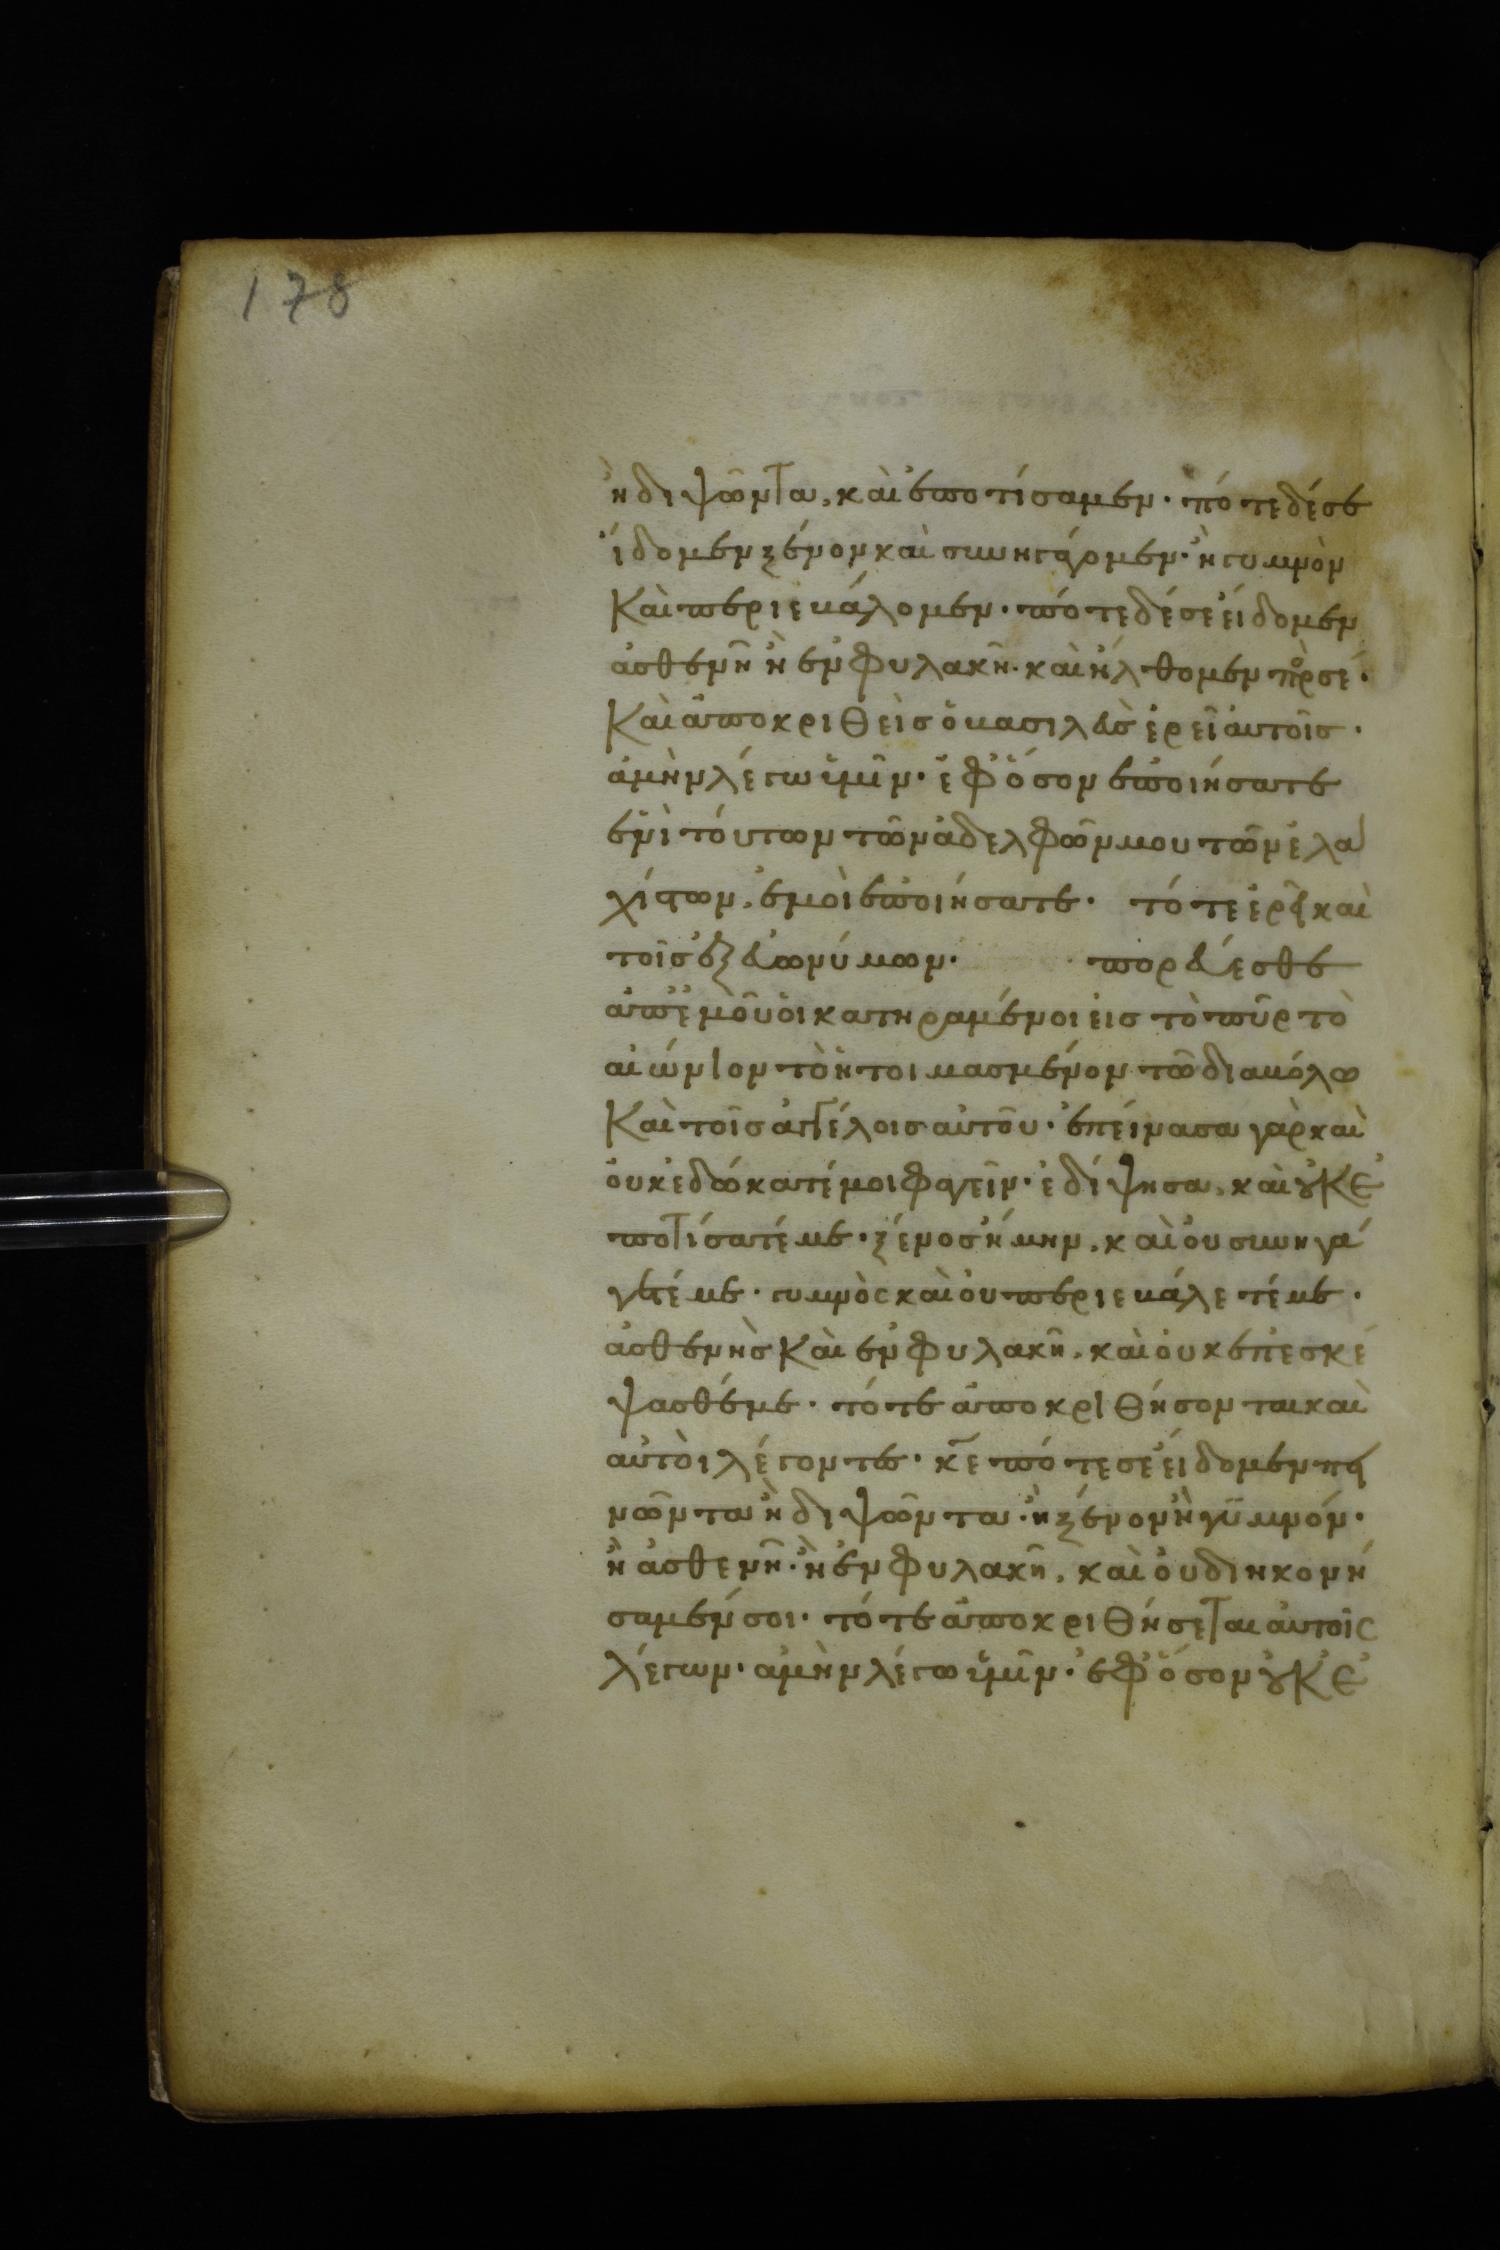 178
ἢ διψῶντα, καὶ ἐποτίσαμεν· πότε δέ σε
ἴδομεν ξένον καὶ συνηγάγομεν· ἢ γυμνὸν
καὶ περιεβάλομεν· πότε δέ σε εἴδομεν
ἀσθενῆ ἢ ἐν φυλακῆ· καὶ ἤλθομεν πρσέ·
Καὶ ἀποκριθεὶς ὁ βασιλεὺς ἐρεῖ αὐτοῖς·
ἀμὴν λέγω ὑμῖν· ἐφ ὅσον ἐποιήσατε
ἑνὶ τούτων τῶν ἀδελφῶν μου τῶν ἐλα
χίστων, ἐμοὶ ἐποιήσατε· τότε ἐρεῖ καὶ
τοῖς ἐξ εὐωνύμων· πορεύεσθε
ἀπ ἐμοῦ οἱ κατηραμένοι εἰς τὸ πῦρ τὸ
αἰώνιον τὸ ἡτοιμασμένον τῶ διαβόλω
Καὶ τοῖς ἀγγέλοις αὐτοῦ· ἐπείνασα γὰρ καὶ
οὐκ ἐδώκατέ μοι φαγεῖν· ἐδίψησα, καὶ οὐκ ἐ
ποτίσατέ με· ξένος ἤμην, καὶ οὐ συνηγά
γετέ με· γυμνὸς καὶ οὐ περιεβάλετέ με·
ἀσθενὴς Καὶ ἐν φυλακῆ, καὶ οὐκ ἐπεσκέ
ψασθέ με· τότε ἀποκριθήσονται καὶ
αὐτοὶ λέγοντες· κε πότε σε εἴδομεν πει
νῶντα ἢ διψῶντα· ἢ ξένον ἢ γυμνόν·
ἢ ἀσθενῆ· ἢ ἐν φυλακῆ, καὶ οὐ διηκονή
σαμέν σοι· τότε ἀποκριθήσεται αὐτοῖς
λέγων· ἀμὴν λέγω ὑμῖν· ἐφ ὅσον οὐκ ἐ